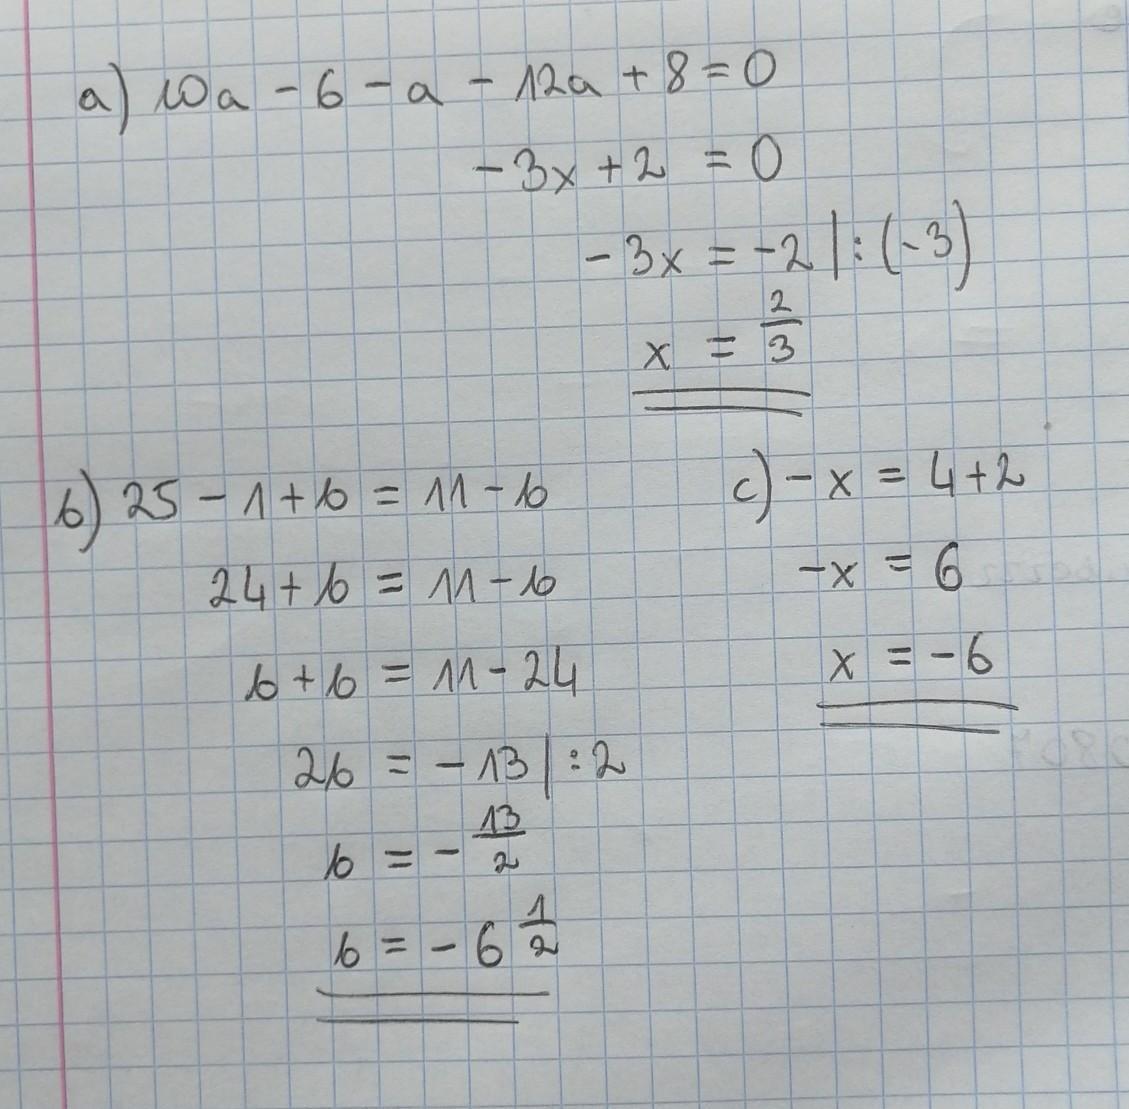 a) 10a - 6 - a - 12a + 8 = 0
-3x + 2 = 0
-3x = -2 | : (-3)
x = 2/3
b) 25 - 1 + b = 11 - b
24 + b = 11 - b
b + b = 11 - 24
2b = -13 | : 2
b = - 13/2
b = - 6 1/2
c) - x = 4 + 2
-x = 6
x = -6